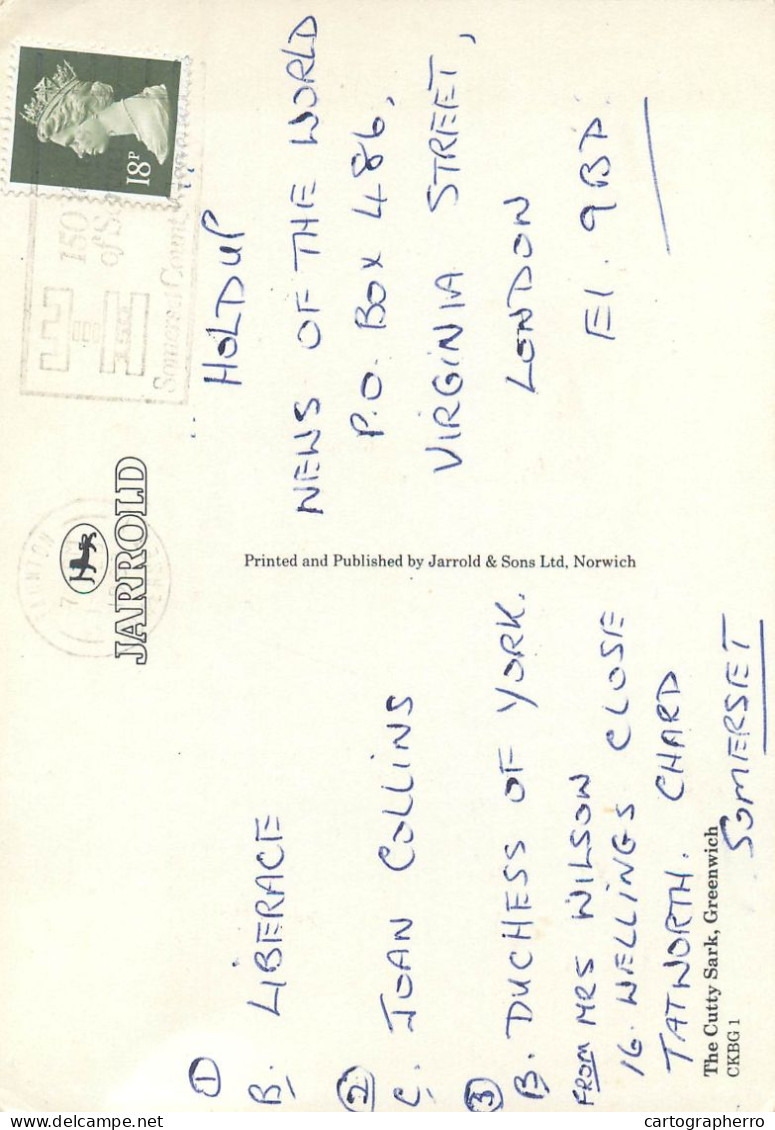 ①
B. LIBERACE
②
C. JOAN COLLINS
③
B. DUCHESS OF YORK.
FROM MRS WILSON
16. WELLINGS CLOSE
TATWORTH. CHARD
SOMERSET
The Cutty Sark, Greenwich
CKBG 1
JARROLD
Printed and Published by Jarrold & Sons Ltd, Norwich
18P
150
of
Somerset County
HOLDUP
NEWS OF THE WORLD
P.O. BOX 486,
VIRGINIA STREET,
LONDON
E1. 9BD.
delcampe.net
cartographerro